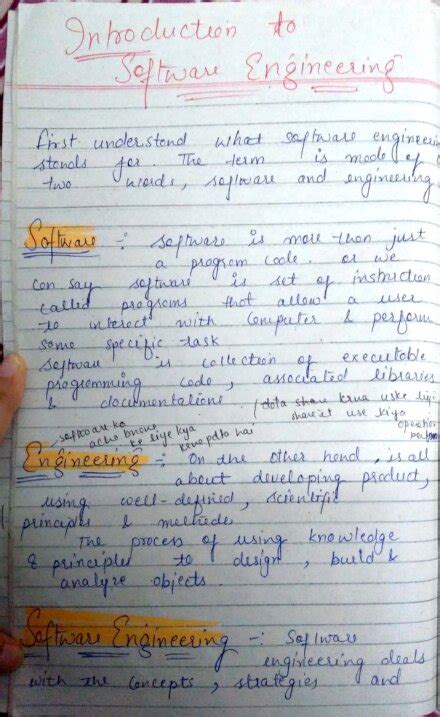 Introduction to
Software Engineering
first understand what software engineerin
stands for. The term is made of
two words, software and engineering
Software :- software is more than just
a program code. or we
can say software is set of instruction
called programs that allow a user
to interact with Computer & perform
some specific task
software is collection of executable
programming code, associated libraries
& documentations. (data share krna uske liye
share it use kiya
software ko
acha banane ke liye kya
karna padta hai
Engineering :- On the other hand, is all
about developing product,
using well-defined, scientific
principles & methods
The process of using knowledge
& principles to design, build &
analyze objects.
Software Engineering -: Software
engineering deals
with the concepts, strategies and